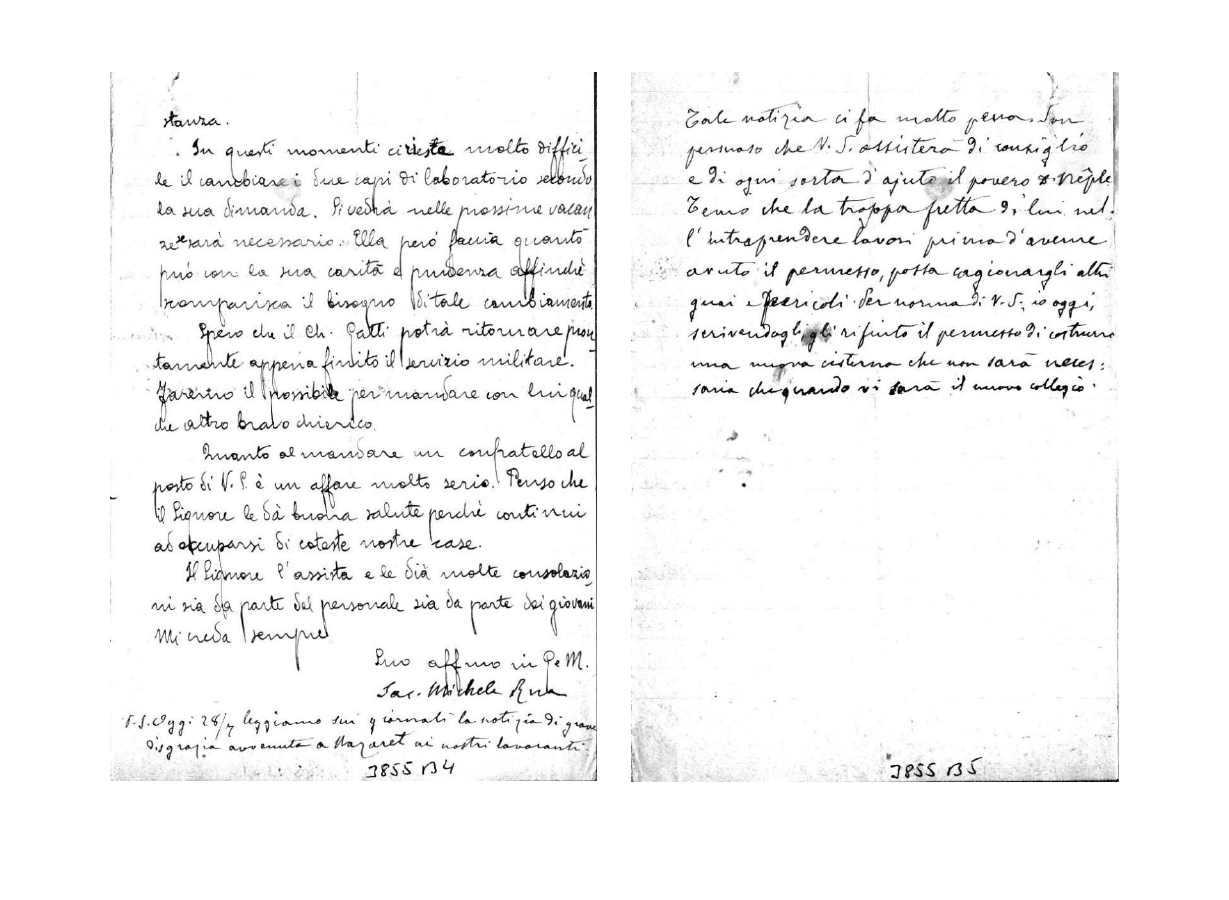 stanza.
In questi momenti ci riesce molto diffici-
le il cambiare i due capi di laboratorio secondo
la sua dimanda. Si vedrà nelle prossime vacan
ze se sarà necessario. Ella però faccia quanto
può con la sua carità e prudenza affinchè
scomparisca il bisogno di tale cambiamento
Spero che il Ch. Gatti potrà ritornare pron-
tamente appena finito il servizio militare.
Faremo il possibile per mandare con lui qual-
che altro bravo chierico.
Quanto al mandare un confratello al
posto di V. S. è un affare molto serio. Penso che
il Signore le dà buona salute perchè continui
ad occuparsi di coteste nostre case.
Il Signore l'assista e le dia molte consolazio-
ni sia da parte del personale sia da parte dei giovani
Mi creda sempre
Suo affmo in G e M.
Sac. Michele Rua
P.S. Oggi 28/7 leggiamo sui giornali la notizia di grave
disgrazia avvenuta a Nazaret ai nostri lavoranti.
3855 B4
Tale notizia ci fa molto pena. Son
persuaso che V. S. assisterà di consiglio
e di ogni sorta d'ajuto il povero D. Nèple
Temo che la troppa fretta di lui nel-
l'intraprendere lavori prima d'averne
avuto il permesso, possa cagionargli altri
guai e pericoli. Per norma di V. S. io oggi,
scrivendogli gli rifiuto il permesso di costrurre
una nuova cisterna che non sarà neces-
saria che quando vi sarà il nuovo collegio.
3855 B5